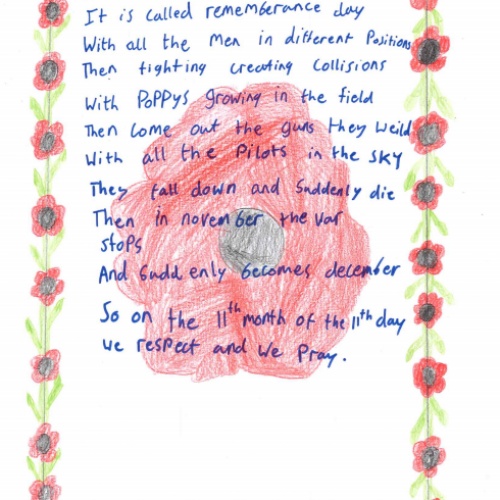 It is called rememberance day
With all the Men in different Positions
Then fighting creating Collisions
With PoPPys growing in the field
Then Come out the guns they weild
With all the Pilots in the SKY
They fall down and Suddenly die
Then in november the var
stops
And Sudd enly becomes december
So on the 11th month of the 11th day
we respect and we Pray.